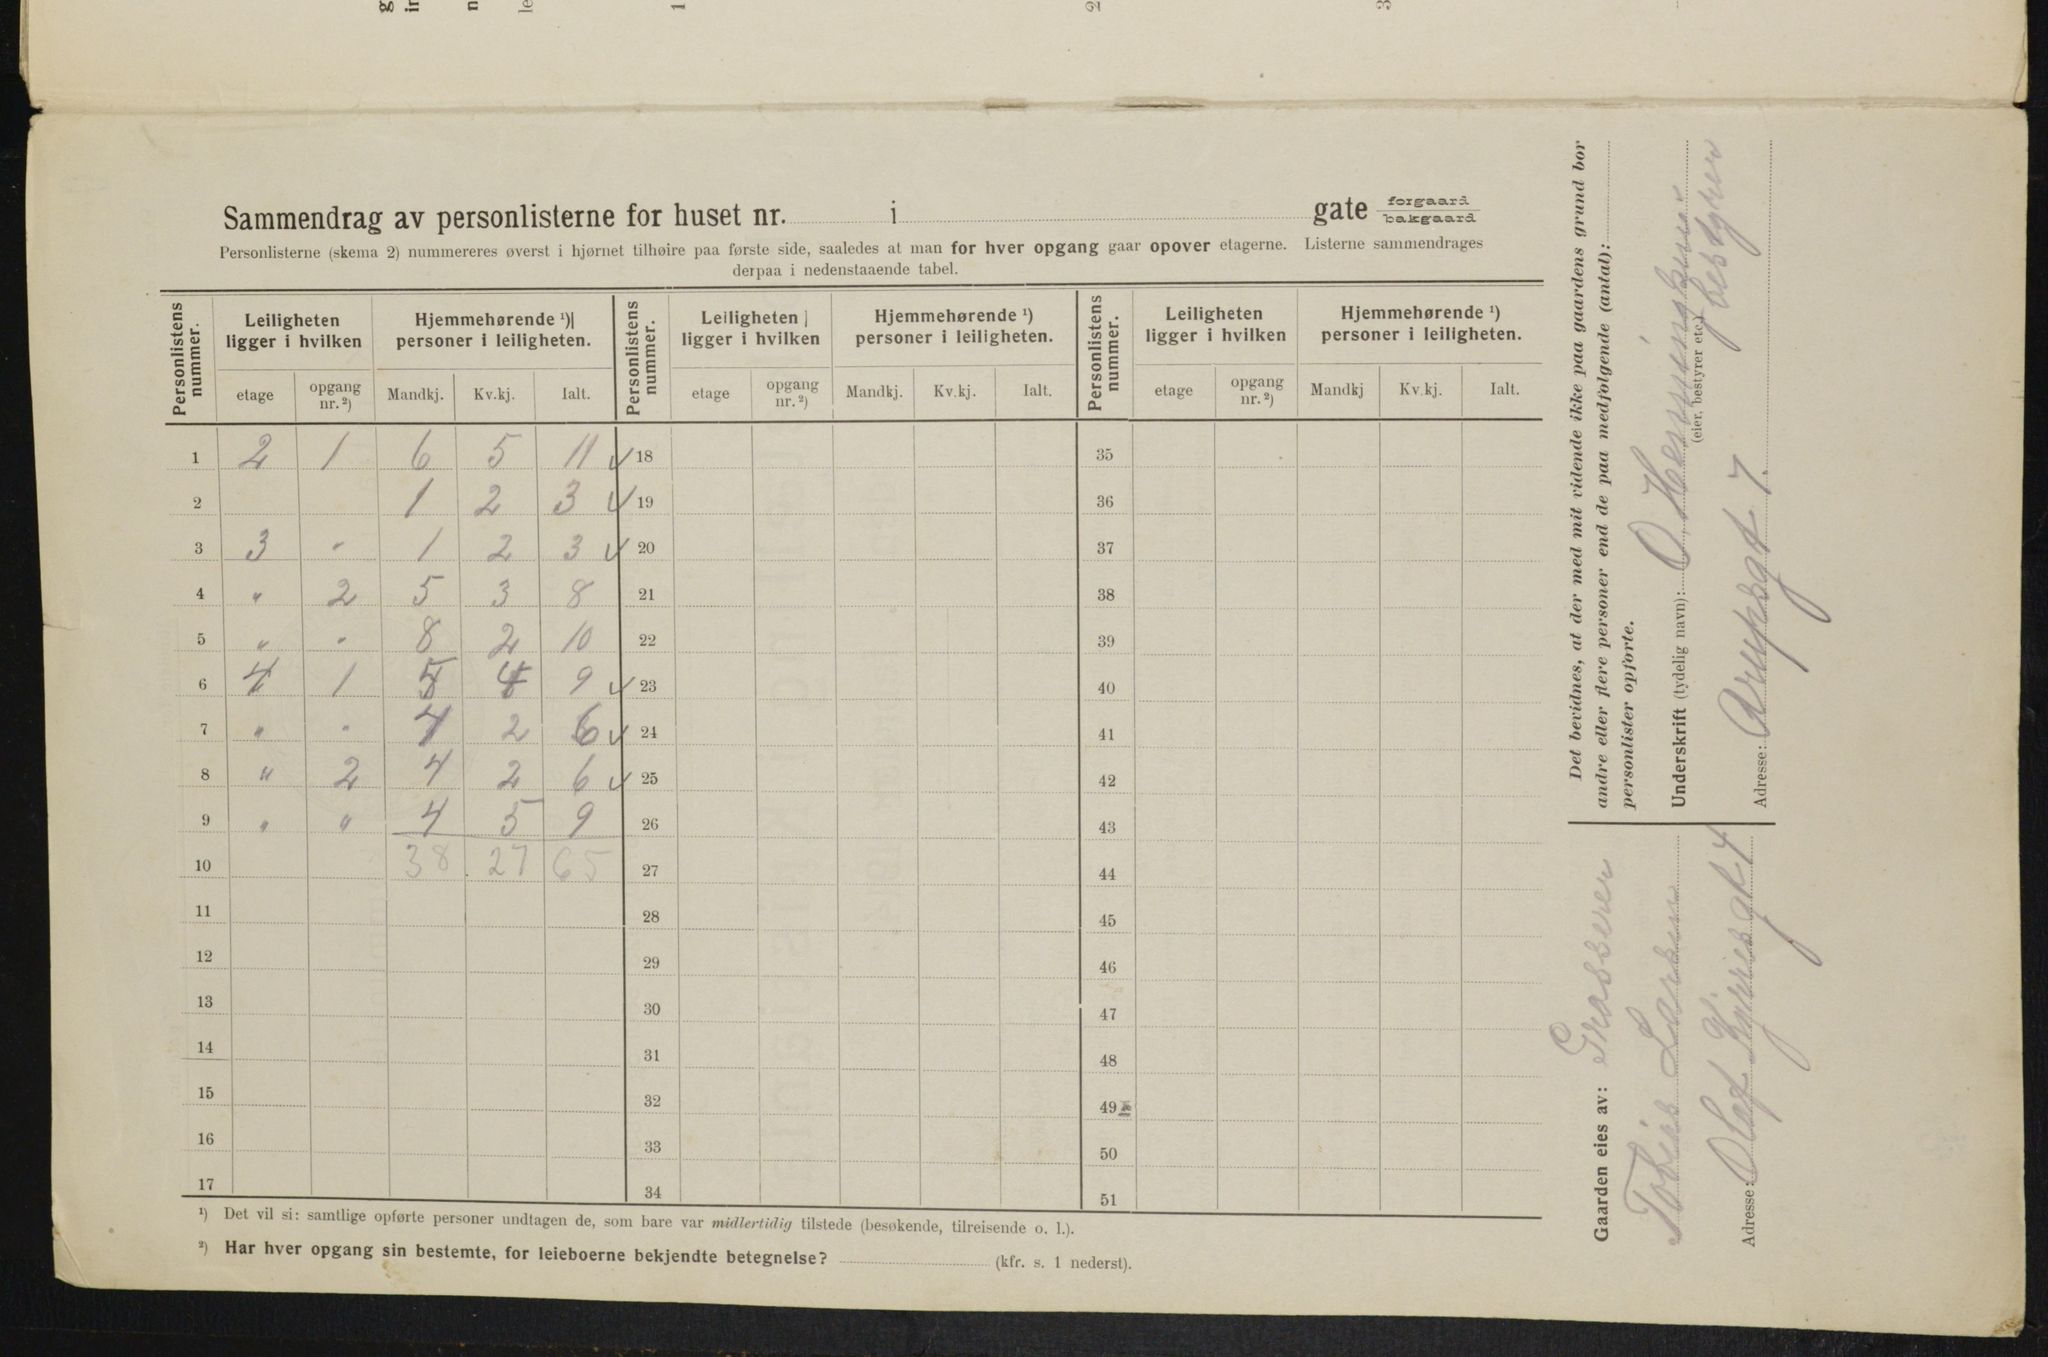 Sammendrag av personlisterne for huset nr. i gate forgaard
bakgaard
Personlisterne (skema 2) nummereres øverst i hjørnet tilhøire paa første side, saaledes at man for hver opgang gaar opover etagerne. Listerne sammendrages
derpaa i nedenstaaende tabel.
Personlistens nummer. Leiligheten ligger i hvilken Hjemmehørende ¹) personer i leiligheten. Personlistens nummer. Leiligheten ligger i hvilken Hjemmehørende ¹) personer i leiligheten. Personlistens nummer. Leiligheten ligger i hvilken Hjemmehørende ¹) personer i leiligheten.
etage opgang nr. ²) Mandkj. Kv.kj. Ialt. etage opgang nr. ²) Mandkj. Kv.kj. Ialt. etage opgang nr. ²) Mandkj Kv.kj. Ialt.
1 2 1 6 5 11 ✓ 18 35
2 1 2 3 ✓ 19 36
3 3 " 1 2 3 ✓ 20 37
4 " 2 5 3 8 21 38
5 " " 8 2 10 22 39
6 4 1 5 4 9 ✓ 23 40
7 " " 4 2 6 ✓ 24 41
8 " 2 4 2 6 ✓ 25 42
9 " " 4 5 9 26 43
10 38 27 65 27 44
11 28 45
12 29 46
13 30 47
14 31 48
15 32 49
16 33 50
17 34 51
¹) Det vil si: samtlige opførte personer undtagen de, som bare var midlertidig tilstede (besøkende, tilreisende o. l.).
²) Har hver opgang sin bestemte, for leieboerne bekjendte betegnelse? (kfr. s. 1 nederst).
Gaarden eies av: Grosserer
Tobias Larsen
Adresse: Olaf Kyrresgt. 4
Det bevidnes, at der med mit vidende ikke paa gaardens grund bor
andre eller flere personer end de paa medfølgende (antal):
personlister opførte.
Underskrift (tydelig navn): O Henningsen
(eier, bestyrer etc.) bestyrer
Adresse: Arupsgt. 7.